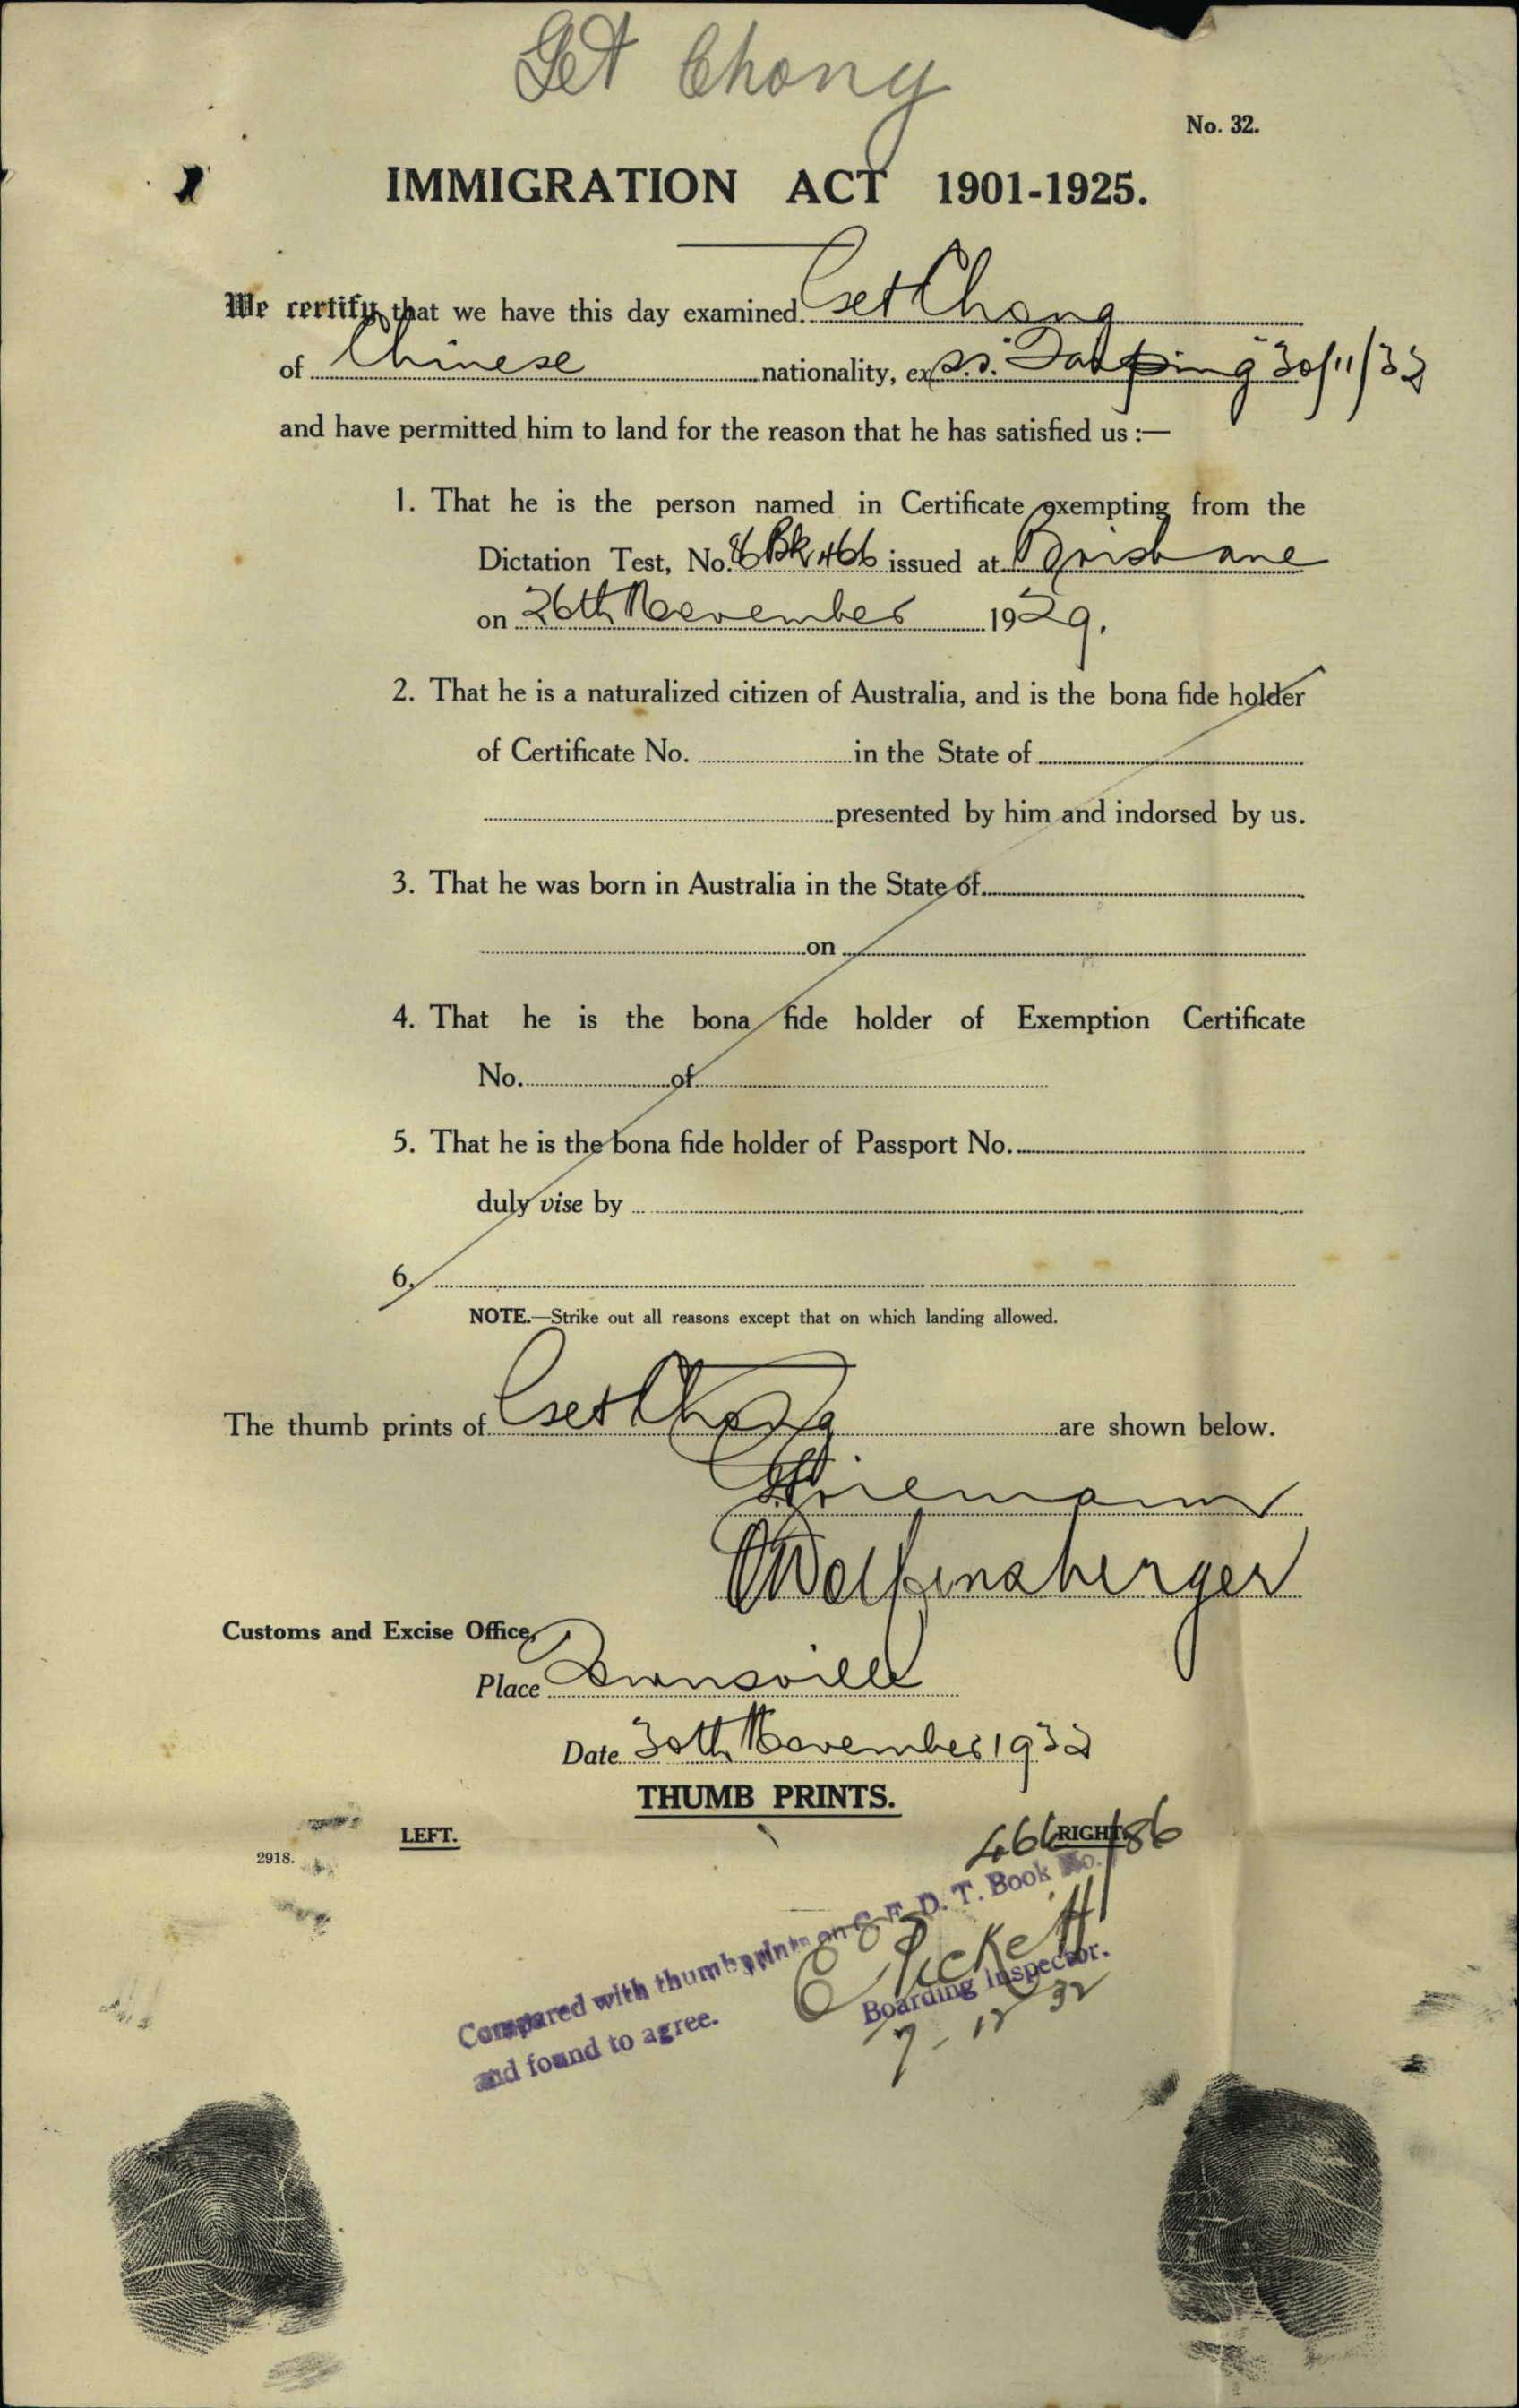 Get Chong
No. 32.
IMMIGRATION ACT 1901-1925.
We certify that we have this day examined Get Chong
of Chinese nationality, ex s.s. "Taiping" 30/11/32
and have permitted him to land for the reason that he has satisfied us :—
1. That he is the person named in Certificate exempting from the
Dictation Test, No. Bk 466 issued at Brisbane
on 26th November 1929.
2. That he is a naturalized citizen of Australia, and is the bona fide holder
of Certificate No. in the State of
presented by him and indorsed by us.
3. That he was born in Australia in the State of
on
4. That he is the bona fide holder of Exemption Certificate
No. of
5. That he is the bona fide holder of Passport No.
duly vise by
6.
NOTE.—Strike out all reasons except that on which landing allowed.
The thumb prints of Get Chong are shown below.
Customs and Excise Office,
Place Townsville
Date 30th November 1932
THUMB PRINTS.
LEFT.
466/86
RIGHT.
2918.
Compared with thumbprints on C. E. D. T. Book No.
and found to agree.
Pickett
Boarding Inspector.
7-12-32